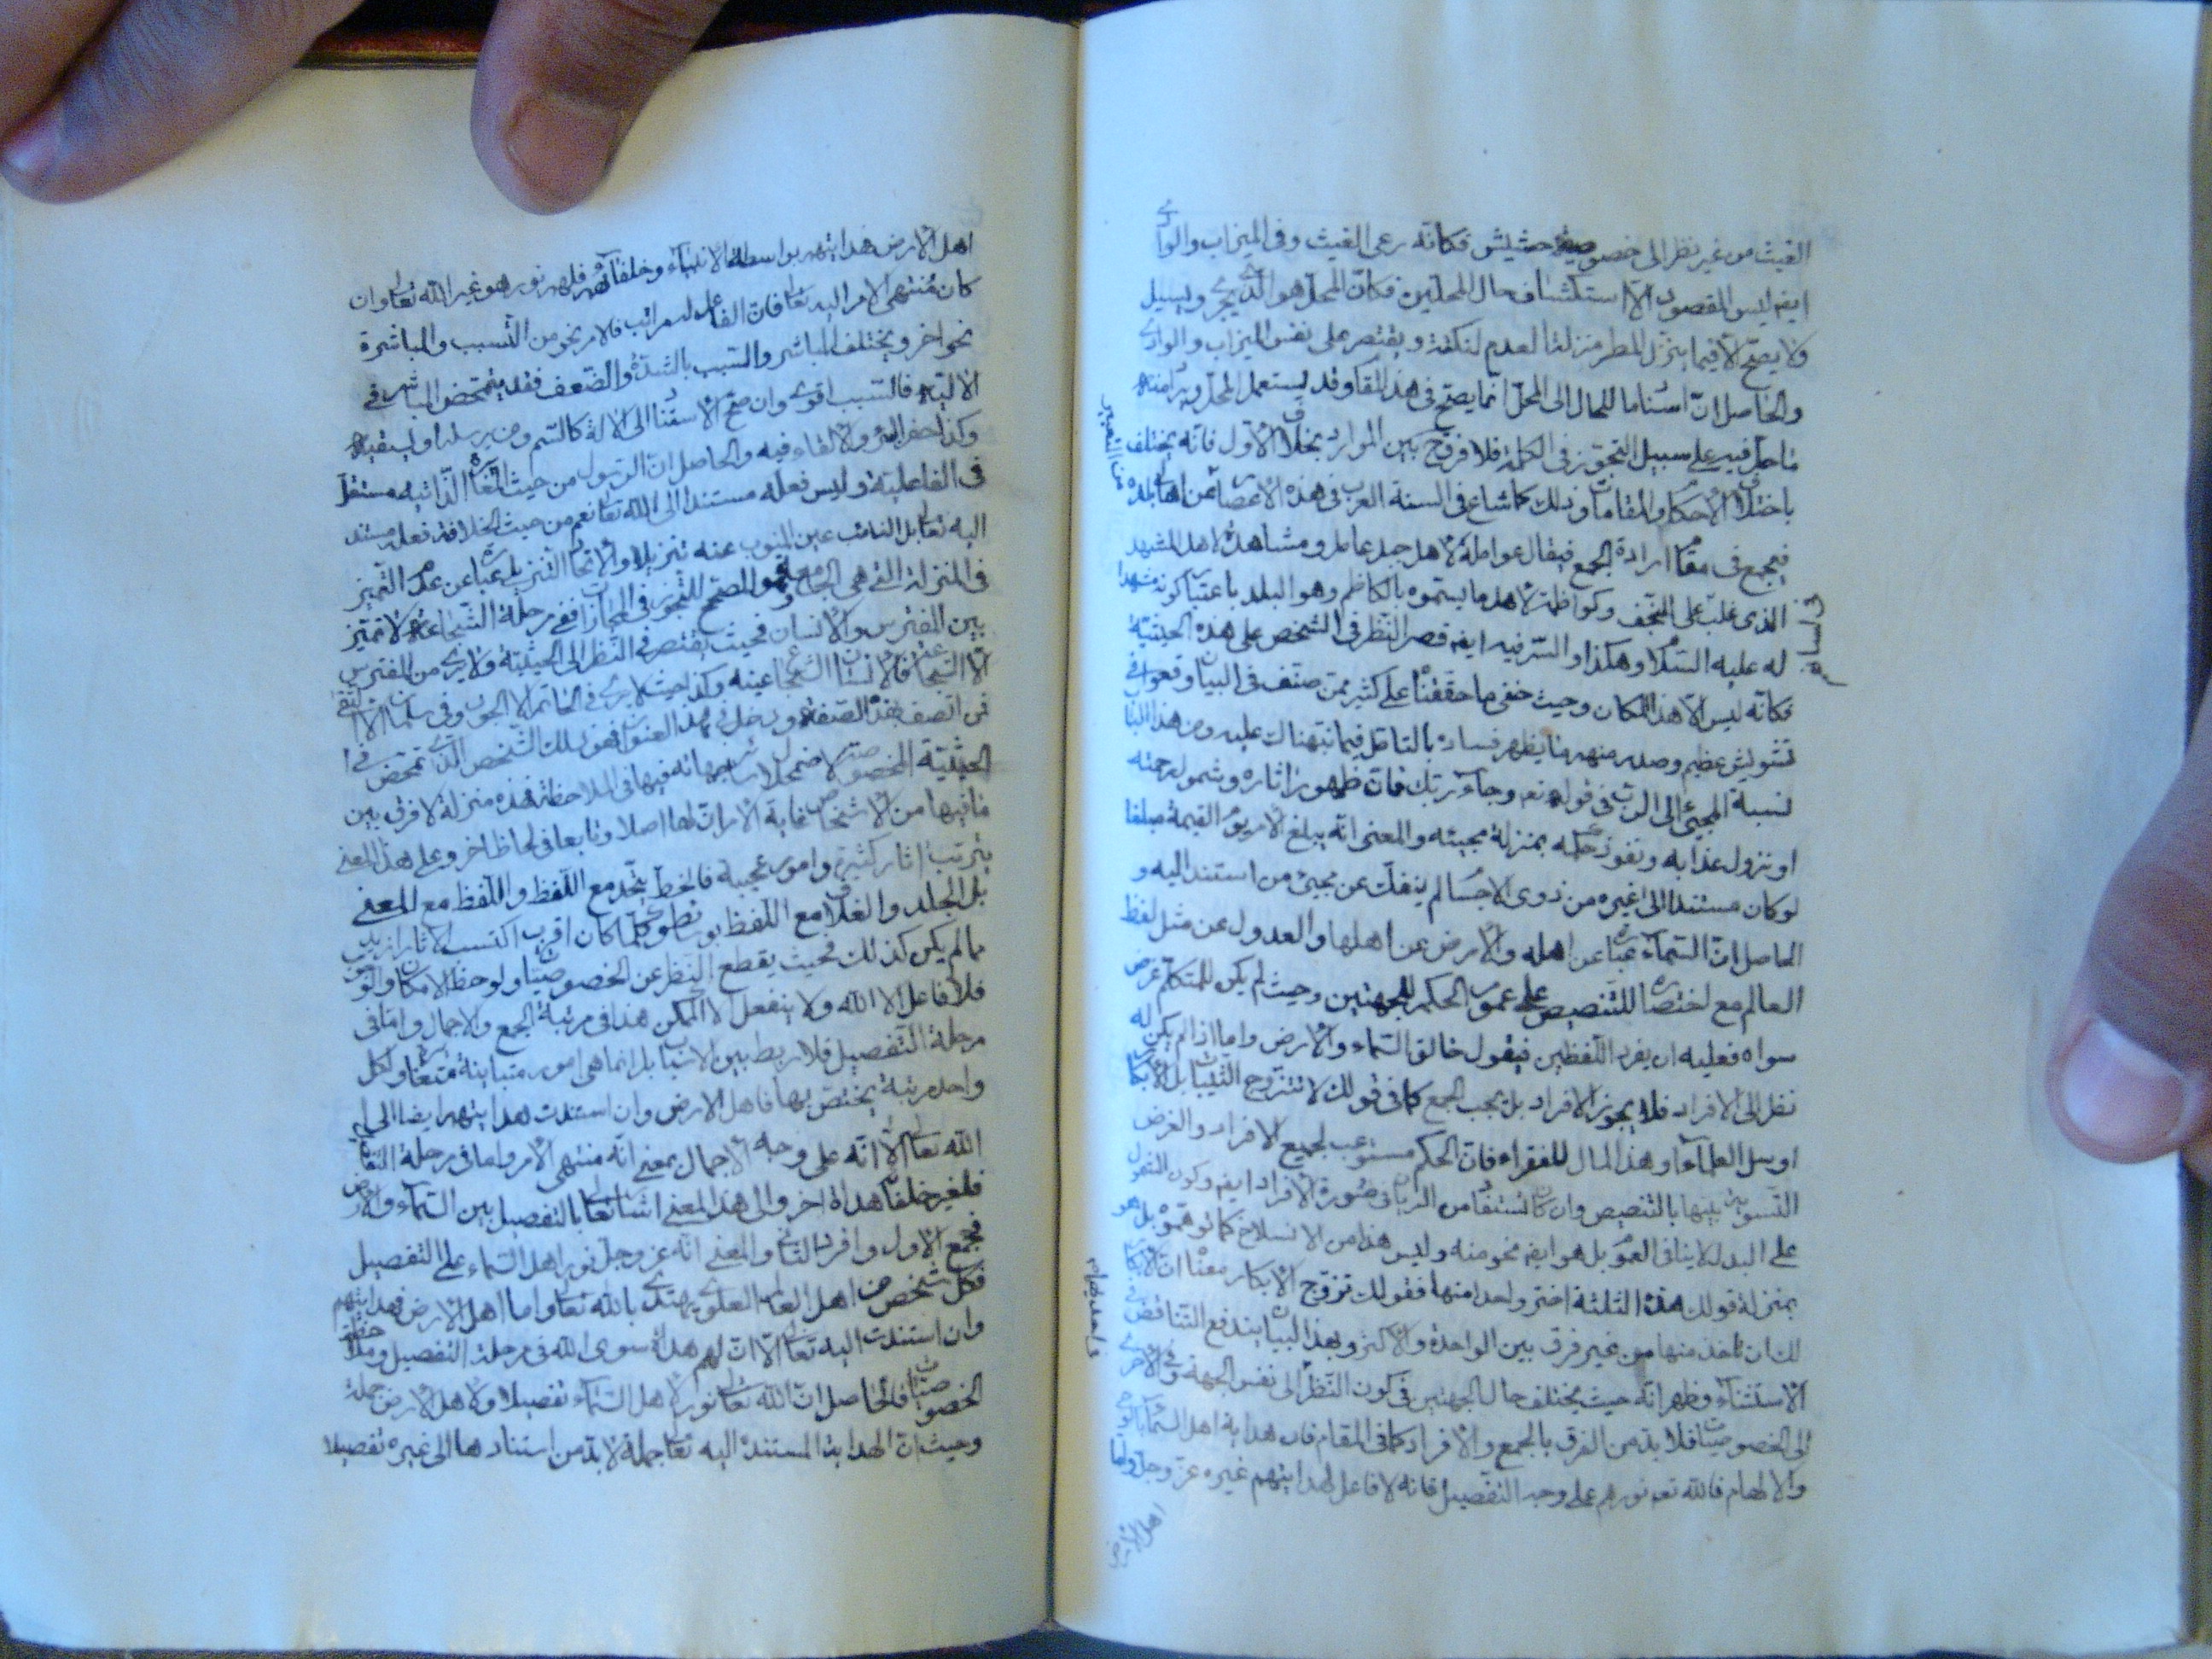 الغيث من غير نظر الى خصوصية حشيش فكانه رعى الغيث وفى الميزاب والوادي
ايضا ليس المقصود الا استكشاف حال المحلين فكان المحل هو الذي يجري ويسيل
ولا يصح الا فيما ينزل المطر منزلة العدم لنكتة ويقتصر على نفس الميزاب والوادي
والحاصل ان اسناد ما للحال الى المحل انما يصح فى هذا المقام وقد يستعمل المحل ويراد منه
ما حل فيه على سبيل التجوز فى الكلمة فلا فرق ح بين الموارد بخلاف الاول فانه يختلف
باختلاف الاحكام والمقامات وذلك كما شاع فى السنة العرب فى هذه الاعصار عن اهل بلده
فيجمع فى مقام ارادة الجمع فيقال عوامله لاهل جبل عامل ومشاهدة لاهل المشهد
الذى غلب على النجف وكواظمه لاهل ما يسموه بالكاظم وهو البلد باعتبار كونه مشهدا
له عليه السلام وهكذا والسر فيه ايضا قصر النظر فى الشخص على هذه الحيثية
فكانه ليس الا هذا المكان وحيث خفى ما حققناه على كثير ممن صنف فى البيان وقعوا فى
تشويش عظيم وصدر منهم ما يظهر فساده بالتامل فيما نبهناك عليه ومن هذا الباب
نسبة المجئ الى الرب فى قوله تعه وجاء ربك فان ظهور اثاره وشمول رحمته
او نزول عذابه ونفوذ حكمه بمنزلة مجيئه والمعنى انه يبلغ الامر يوم القيمة مبلغا
لو كان مستندا الى غيره من ذوى الاجسام لم ينفك عن مجئ من استند اليه و
الحاصل ان السماء عبارة عن اهله والارض عن اهلها والعدول عن مثل لفظ
العالم مع اختصاره للتنصيص على عموم الحكم للجهتين وحيث لم يكن للمتكلم غرض
سواه فعليه ان يفرد اللفظين فيقول خالق السماء والارض واما اذا لم يكن له
نظر الى الافراد فلا يجوز الافراد بل يجب الجمع كما فى قولك لا تتزوج الثيبات بل الابكار
او سل العلماء او هذا المال للفقراء فان الحكم مستوعب لجميع الافراد والغرض
التسوية بينها بالتنصيص وان كان مستفادا من الرياض فى صورة الافراد ايضا وكون الشمول
على البدل لا ينافى العموم بل هو ايضا نحو منه وليس هذا من الانسلاخ كما توهموه بل هو
بمنزلة قولك هذه الثلثة اختر واحدا منها فقولك تزوج الابكار معناه ان الابكار
لك ان تاخذ منها من غير فرق بين الواحدة والاكثر وبهذا البيان يندفع التناقض فى
الاستثناء وظهر انه حيث يختلف حال الجهتين فى كون النظر الى نفس الجهة وفى الاخرى
الى الخصوصيات فلا بد من الفرق بالجمع والافراد كما فى المقام فان هداية اهل السماء بالوحي
والالهام فالله تعه نورهم على وجه التفصيل فانه لا فاعل لهدايتهم غيره عز وجل واما
اهل الارض
اهل الارض هدايتهم بواسطة الانبياء وخلفائهم فلهم نور هو غير الله تعالى وان
كان منتهى الامر اليه تعالى فان الفاعل له مراتب فالامر نحو من التسبيب والمباشرة
نحو اخر ويختلف المباشر والسبب بالشدة والضعف فقد يتمحض المباشر فى
الالية فالسبب اقوى وان صح الاستناد الى الالة كالسم ومن يرسله او يسقيه
وكذا حفر البئر والالقاء فيه والحاصل ان الرسول من حيث الذاتية مستقل
فى الفاعلية وليس فعله مستندا الى الله تعالى نعم من حيث الخلافة فعله مستند
اليه تعالى بل النائب عين المنوب عنه تنزيلا والاتحاد التنزيلى عبارة عن عدم التميز
فى المنزلة التى هى الجامعة وهو المصحح للتجوز فى المجازات ففى مرحلة الشجاعة لا تميز
بين المفترس والانسان فحيث يقتصر فى النظر الى الحيثية ولا يرى من المفترس
الا الشجاعة فالانسان الشجاع عينه وكذا حيث لا يرى فى الخاتم الا الجود وفى سلمان الا التقى
فمن اتصف بهذه الصفة ودخل فى هذا العنوان فهو ذلك الشخص الذى تمحض فى
الحيثية المخصوصة لاضمحلال سائر جهاته فيها فى الملاحظة فهذه منزلة لا فرق بين
ما فيها من الاشخاص غاية الامر ان لها اصلا وتابعا فى لحاظ اخر وعلى هذا المعنى
يترتب اثار كثيرة وامور عجيبة فالخط يتحد مع اللفظ واللفظ مع المعنى
بل الجلد والغلاف مع اللفظ بوسائط وكلما كان اقرب اكتسب الاثار ازيد
ما لم يكن كذلك فحيث يقطع النظر عن الخصوصيات ولوحظ الامكان والوجوب
فلا فاعل الا الله ولا ينفعل الا الممكن هذا فى مرتبة الجمع والاجمال واما فى
مرحلة التفصيل فلا ربط بين الاشياء بل انما هى امور متباينة ولكل
واحد مرتبة يختص بها فاهل الارض وان استندت هدايتهم ايضا الى
الله تعالى الا انه على وجه الاجمال بمعنى انه منتهى الامر واما فى مرحلة التفصيل
فلغير خلفائه هداة اخر والى هذا المعنى اشار تعالى بالتفصيل بين السماء والارض
فجمع الاول وافرد الثانى والمعنى انه عز وجل نور اهل السماء على التفصيل
فكل شخص من اهل العالم العلوى يهتدى بالله تعالى واما اهل الارض فهدايتهم
وان استندت اليه تعالى الا ان لهم هداة سوى الله فى مرحلة التفصيل وملاحظة
الخصوصيات فالحاصل ان الله تعالى نور لاهل السماء تفصيلا ولاهل الارض جملة
وحيث ان الهداية المستندة اليه تعالى جملة لا بد من استنادها الى غيره تفصيلا